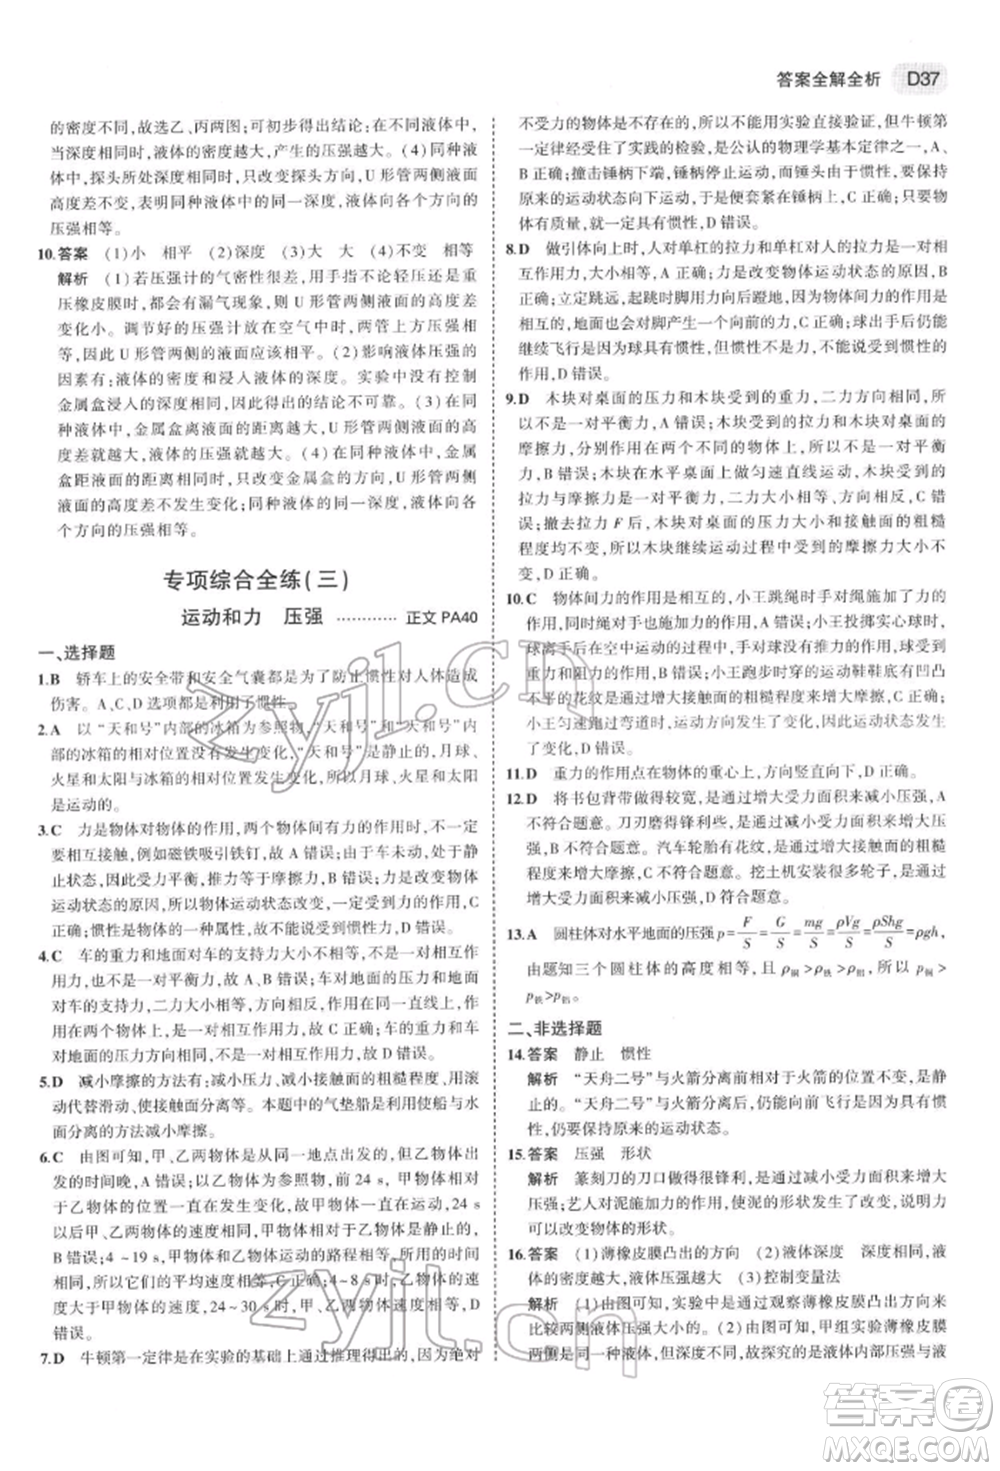 答案全解全析 D37
的密度不同,故选乙、丙两图;可初步得出结论:在不同液体中,
当深度相同时,液体的密度越大,产生的压强越大。(4)同种液
体中,探头所处深度相同时,只改变探头方向,U形管两侧液面
高度差不变,表明同种液体中的同一深度,液体向各个方向的
压强相等。
10.答案 (1)小 相平 (2)深度 (3)大 大 (4)不变 相等
解析 (1)若压强计的气密性很差,用手指不论轻压还是重
压橡皮膜时,都会有漏气现象,则U形管两侧液面的高度差
变化小。调节好的压强计放在空气中时,两侧的压强相
等,因此U形管两侧的液面应该相平。(2)影响液体压强的
因素有:液体的密度和浸入液体的深度。实验中没有控制
金属盒浸入的深度相同,得出的结论不可靠。(3)在同
种液体中,金属盒离液面的距离越大,U形管两侧液面的高
度差就越大,液体的压强就越大。(4)在同种液体中,金属
盒距液面的距离相同时,只改变金属盒的方向,U形管两侧
液面的高度差不发生变化,即同种液体的同一深度,液体向
各个方向的压强相等。
专项综合全练(三)
运动和力 压强 ………… 正文PA40
一、选择题
1.B 轿车上的安全带和安全气囊都是为了防止惯性对人体造成
伤害。A、C、D选项都是利用了惯性。
2.A 以“天和号”内部的冰箱为参照物,“天和号”与“天和号”内
部的冰箱的相对位置没有发生变化,“天和号”是静止的,月球、
火星和太阳与冰箱的相对位置发生了变化,所以月球、火星和太阳
是运动的。
3.C 力是物体对物体的作用,两个物体间有力的作用时,不一定
要相互接触,例如磁铁吸引铁钉,故A错误;由于车未动,处于静
止状态,因此受力平衡,推力等于摩擦力,B错误;力能改变物体的
运动状态,物体的运动状态改变,一定受到了力的作用,C正
确;惯性是物体的一种属性,物体在任何情况下都有惯性,D错误。
4.C 车的重力和地面对车的支持力大小不相等,方向也不相
反,不是一对平衡力,故A、B错误;车对地面的压力与地面
对车的支持力,二力大小相等,方向相反,作用在同一直线上,
作用在两个物体上,是一对相互作用力,故C正确;车的重力与
车对地面的压力方向相同,不是一对相互作用力,故D错误。
5.D 减小摩擦的方法有:减小压力,减小接触面的粗糙程度,用滚
动代替滑动,使接触面分离。本题中的气垫船是利用使船与水
面分离的方法减小摩擦。
6.C 由图可知,甲、乙两物体是从同一地点出发的,甲物体比乙
物体出发的时间晚,A错误;以乙物体为参照物,前24 s,甲物体相
对于乙物体的位置一直在发生变化,故甲物体是运动的,24 s
以后甲、乙两物体的速度相同,甲物体相对于乙物体是静止的,
B错误;4~19 s,甲物体和乙物体运动的路程相等,所以它们
的速度大小相等,C正确;由图像可知,4~8 s时,乙物体的速度大于
甲物体的速度,24~30 s时,甲、乙两物体的速度相等,D
错误。
7.D 牛顿第一定律是在实验的基础上通过推理得出来的,因为绝对
不受力的物体是不存在的,所以不能用实验直接验证,但牛顿第
一定律经受住了实践的检验,是公认的力学基本定律之一,A、B、
C错误;撞击锤柄下端,锤柄停止运动,而锤头由于惯性会保持原来
的运动状态向下运动,便会紧紧套在锤柄上,D正确。
8.D 做引体向上时,人对单杠的拉力和单杠对人的拉力是一对相
互作用力,A正确;力是改变物体运动状态的原因,B正
确;立定跳远,起跳时脚用力向后蹬地,因为物体间力的作用是
相互的,地面也会对脚产生一个向前的力,C正确;球出手后仍能
继续飞行是因为球具有惯性,但不能说受到惯性的作
用,D错误。
9.D 木块对桌面的压力和木块受到的重力,二力方向相同,所
以不是一对平衡力,A错误;木块受到的摩擦力和木块对桌面的
摩擦力,分别作用在两个不同的物体上,所以不是一对平衡
力,B错误;木块在水平桌面上做匀速直线运动,木块受到的
拉力与摩擦力是一对平衡力,大小相等,方向相反,C错
误;撤去拉力F后,木块对桌面的压力大小和接触面的粗糙
程度均不变,所以木块继续运动过程中受到的摩擦力大小不
变,D正确。
10.C 物体间力的作用是相互的,小王跳绳时手对绳施
力的同时,绳对手也施加了力,A正确;小王投掷实心球时,
球离手后在空中运动,运动状态发生了改变,
是因为球受到重力的作用,B正确;小王跑步时穿的运动鞋鞋底有凹凸
不平的花纹是为了增大接触面的粗糙程度来增大摩擦,C错误;
小王匀速跑过弯道时,运动方向发生了变化,因此运动状态发生了
改变,D正确。
11.D 重力的作用点在物体的重心,重力的方向竖直向下,D正确。
12.D 将书包背带做得较宽,是通过增大受力面积来减小压强,A
不符合题意。刀刃磨得锋利些,是通过减小受力面积来增大压
强,B不符合题意。汽车轮胎有花纹,是通过增大接触面的粗糙
程度来增大摩擦,C不符合题意。挖土机安装很多轮子,是通过
增大受力面积来减小压强,D符合题意。
13.A 圆柱体对水平地面的压强p=F/S=G/S=mg/S=ρVg/S=ρShg/S=ρgh,
由题知三个圆柱体的高度相等,因为ρ铜>ρ铁>ρ铝,所以p铜>
p铁>p铝。
二、非选择题
14.答案 静止 惯性
解析 “天舟二号”与火箭分离前相对于火箭的位置不变,是静
止的。“天舟二号”与火箭分离后,仍能向前飞行是由于具有惯
性,仍要保持原来的运动状态。
15.答案 压强 形状
解析 篆刻刀的刀口做得很锋利,是通过减小受力面积来增大
压强;艺人对泥施加力的作用,使泥的形状发生了改变,说明力
可以改变物体的形状。
16.答案 (1)薄橡皮膜凸出的方向 (2)液体深度 深度相同,液
体的密度越大,液体压强越大 (3)控制变量法
解析 (1)由图可知,实验中是通过观察薄橡皮膜凸出的方向来
比较液体压强大小的。(2)由图可知,甲组实验薄橡皮膜
两侧的液体相同,但深度不同,故探究的是液体内部压强与液